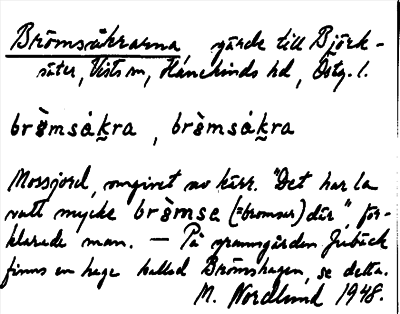 Brömsåkrarna, gärde till Björk-
säter, Vists sn, Hanekinds hd, Östg. l.
brö̀msåkra, brö̀msåkra
Mossjord, omgivet av kärr. "Det har la
vatt mycke brö̀mse (=bromsar) där", för-
klarade man. — På granngården
finns en hage kallad Brömshagen, se detta.
M. Nordlund 1948.